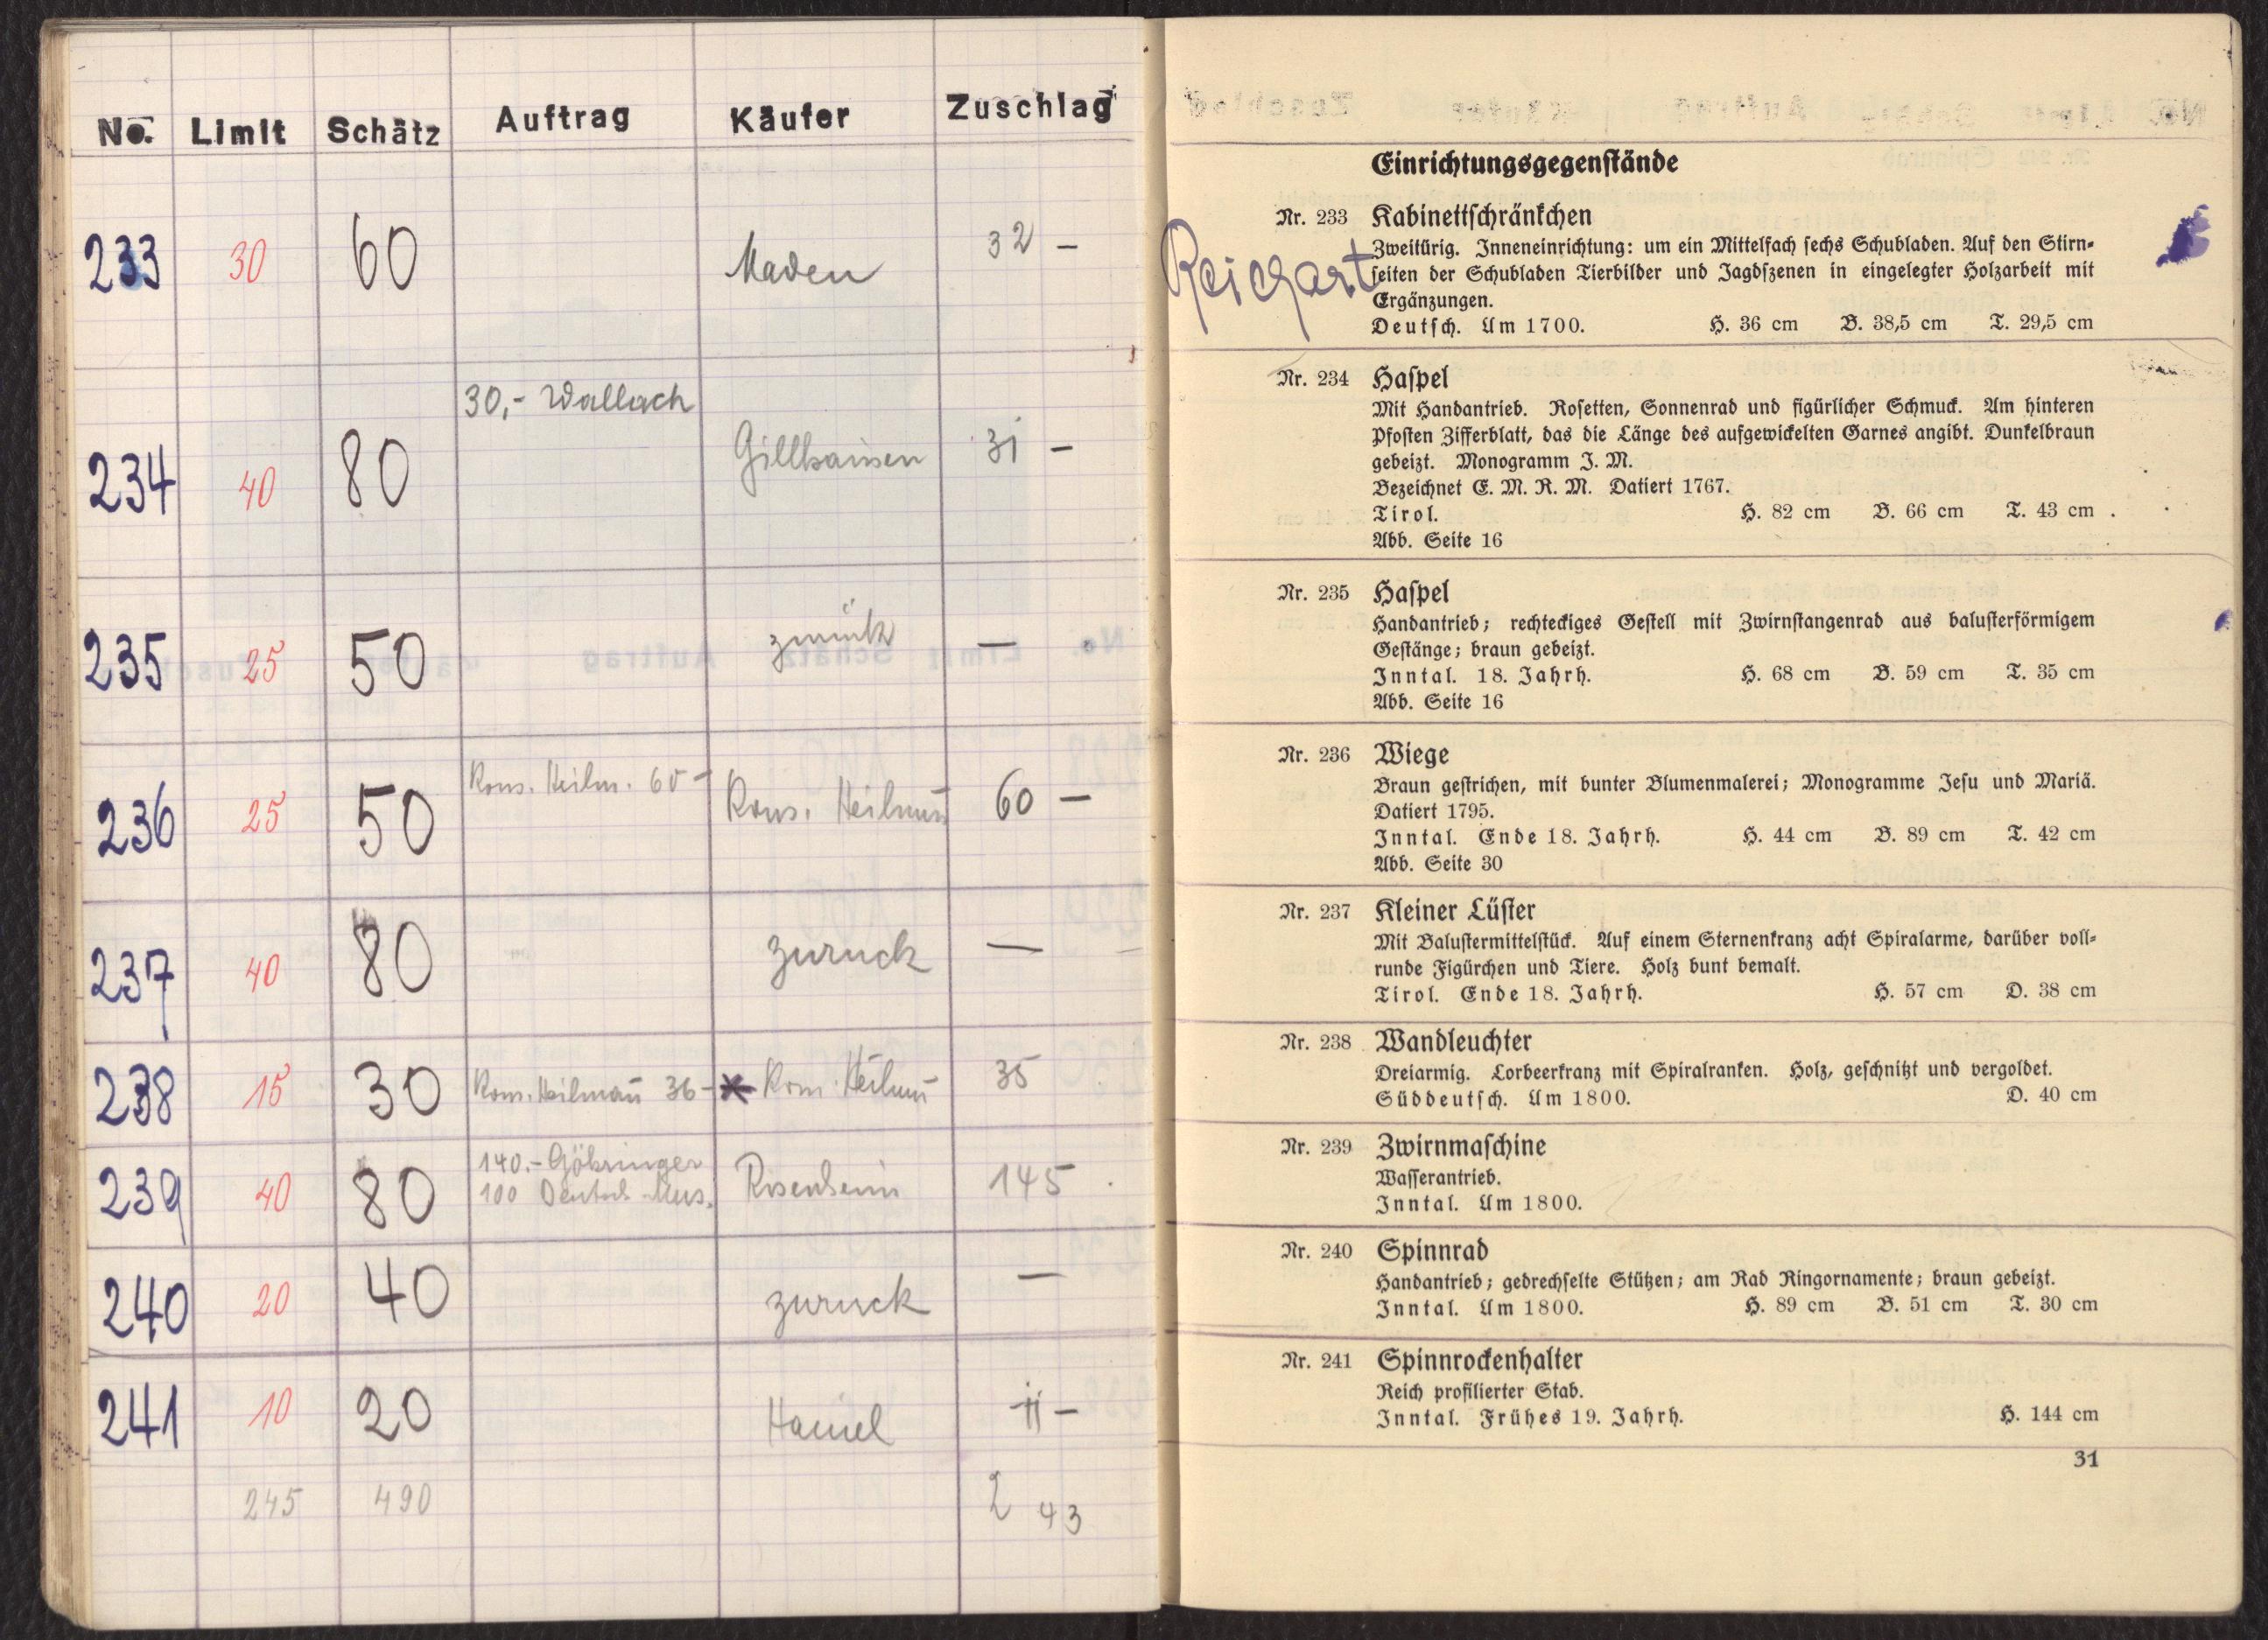 No. Limit Schätz Auftrag Käufer Zuschlag
233 30 60 Maden 32 –
30,- Wallach
234 40 80 Gillhausen 31 –
235 25 50 zurück —
Kons. Heilm. 60 –
236 25 50 Kons. Heilmañ 60 –
237 40 80 zurück —
238 15 30 Kom. Heilmañ 36 – * Kom. Heilmañ 35
140.- Göhringer
239 40 80 100 Deutsch. Mus. Rosenheim 145
240 20 40 zurück —
241 10 20 11 –
245 490 243
Einrichtungsgegenstände
Reichart
Nr. 233 Kabinettschränkchen
Zweitürig. Inneneinrichtung: um ein Mittelfach sechs Schubladen. Auf den Stirn-
seiten der Schubladen Tierbilder und Jagdszenen in eingelegter Holzarbeit mit
Ergänzungen.
Deutsch. Um 1700. H. 36 cm B. 38,5 cm T. 29,5 cm
Nr. 234 Haspel
Mit Handantrieb. Rosetten, Sonnenrad und figürlicher Schmuck. Am hinteren
Pfosten Zifferblatt, das die Länge des aufgewickelten Garnes angibt. Dunkelbraun
gebeizt. Monogramm J. M.
Bezeichnet E. M. R. M. Datiert 1767.
Tirol. H. 82 cm B. 66 cm T. 43 cm
Abb. Seite 16
Nr. 235 Haspel
Handantrieb; rechteckiges Gestell mit Zwirnstangenrad aus balusterförmigem
Gestänge; braun gebeizt.
Inntal. 18. Jahrh. H. 68 cm B. 59 cm T. 35 cm
Abb. Seite 16
Nr. 236 Wiege
Braun gestrichen, mit bunter Blumenmalerei; Monogramme Jesu und Mariä.
Datiert 1795.
Inntal. Ende 18. Jahrh. H. 44 cm B. 89 cm T. 42 cm
Abb. Seite 30
Nr. 237 Kleiner Lüster
Mit Balustermittelstück. Auf einem Sternenkranz acht Spiralarme, darüber voll-
runde Figürchen und Tiere. Holz bunt bemalt.
Tirol. Ende 18. Jahrh. H. 57 cm D. 38 cm
Nr. 238 Wandleuchter
Dreiarmig. Lorbeerkranz mit Spiralranken. Holz, geschnitzt und vergoldet.
Süddeutsch. Um 1800. D. 40 cm
Nr. 239 Zwirnmaschine
Wasserantrieb.
Inntal. Um 1800.
Nr. 240 Spinnrad
Handantrieb; gedrechselte Stützen; am Rad Ringornamente; braun gebeizt.
Inntal. Um 1800. H. 89 cm B. 51 cm T. 30 cm
Nr. 241 Spinnrockenhalter
Reich profilierter Stab.
Inntal. Frühes 19. Jahrh. H. 144 cm
31